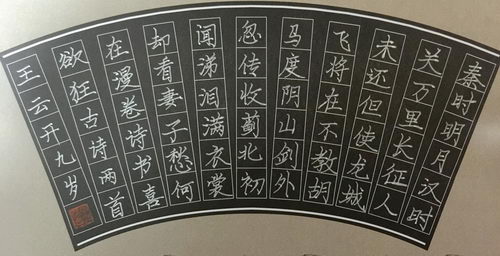 秦时明月汉时
关万里长征人
未还但使龙城
飞将在不教胡
马度阴山剑外
忽传收蓟北初
闻涕泪满衣裳
却看妻子愁何
在漫卷诗书喜
欲狂古诗两首
王云开九岁